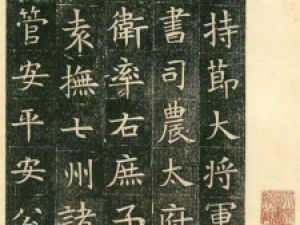 持節大將軍
書司農太府
衛率右庶子
袁撫七州諸
管安平安公